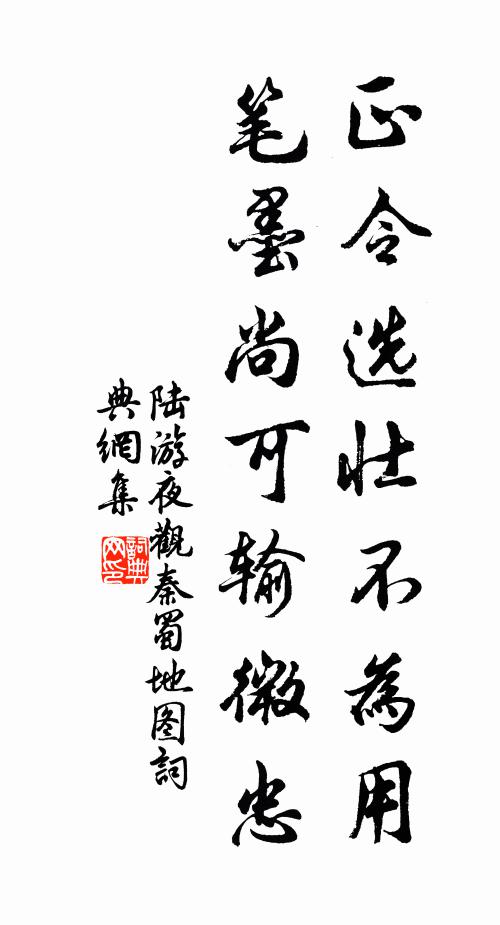 正令选壮不為用
笔墨尚可输微忠
陆游夜觀秦蜀地图詞
典網集
詞典
网印